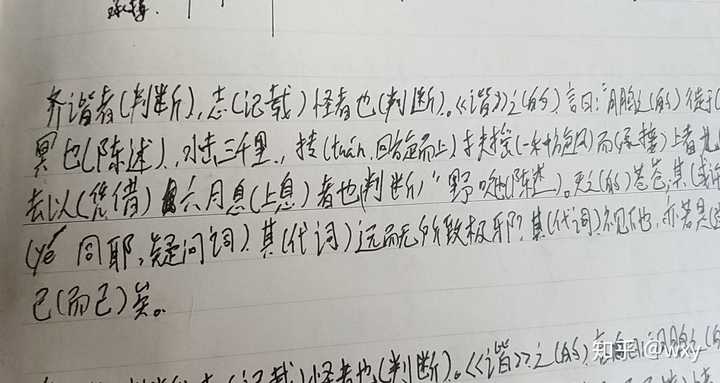 齐谐者(判断),志(记载)怪者也(判断)。《谐》之(的)言曰:"鹏之(的)徙于(
冥也(陈述),水击三千里,抟(tuán,回旋而上)扶摇(旋风)而(承接)上者九
去以(凭借)六月息(止息)者也(判断)"野 (陈述)。天之(的)苍苍,其(或许
(yé 同耶,疑问词)其(代词)远而无所致极邪?其(代词)视下也,亦若是(
已(而已)矣。
(记载)怪者也(判断)。《谐》之(的)言曰:"鹏之(的
知乎 @wxy